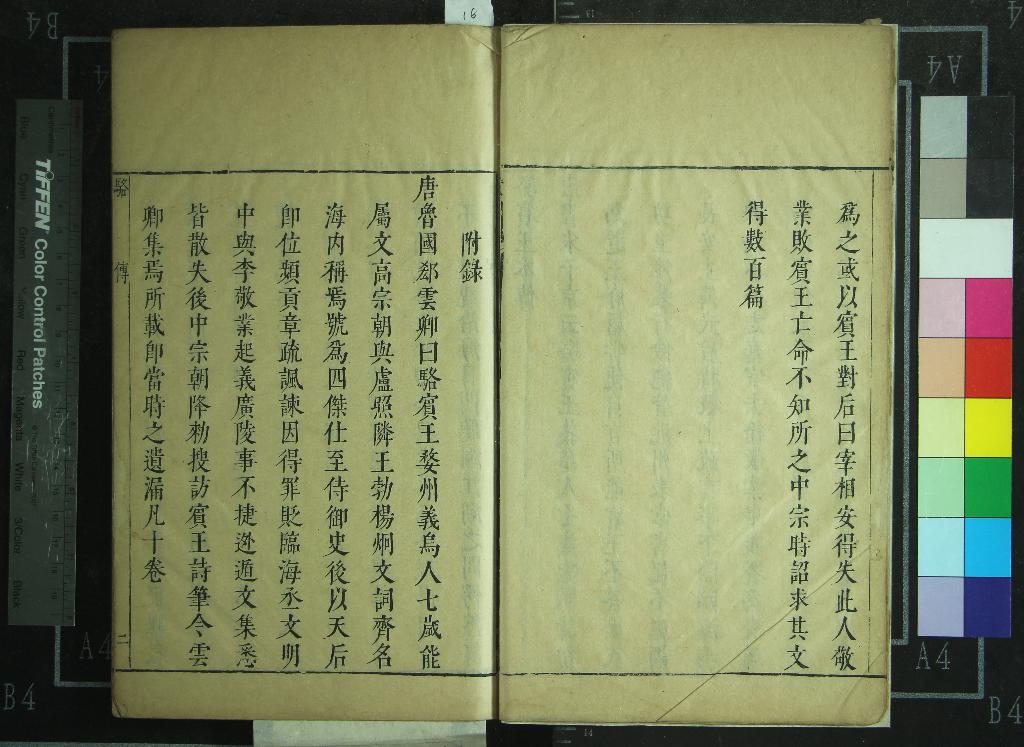 爲之或以賓王對后曰宰相安得失此人敬
業敗賓王亡命不知所之中宗時詔求其文
得數百篇
附錄
唐魯國郄雲卿曰駱賓王婺州義烏人七歲能
屬文高宗朝與盧照隣王勃楊炯文詞齊名
海内稱焉號爲四傑仕至侍御史後以天后
卽位頻貢章疏諷諫因得罪貶臨海丞文明
中與李敬業起義廣陵事不捷迯遁文集悉
皆散失後中宗朝降勑搜訪賓王詩筆令雲
卿集焉所載卽當時之遺漏凡十卷
駱
傳
二
16
TIFFEN Color Control Patches
Blue
Cyan
Green
Yellow
Red
Magenta
White
3/Color
Black
Centimetres
A4
A4
A4
A4
B4
B4
B4
13
14